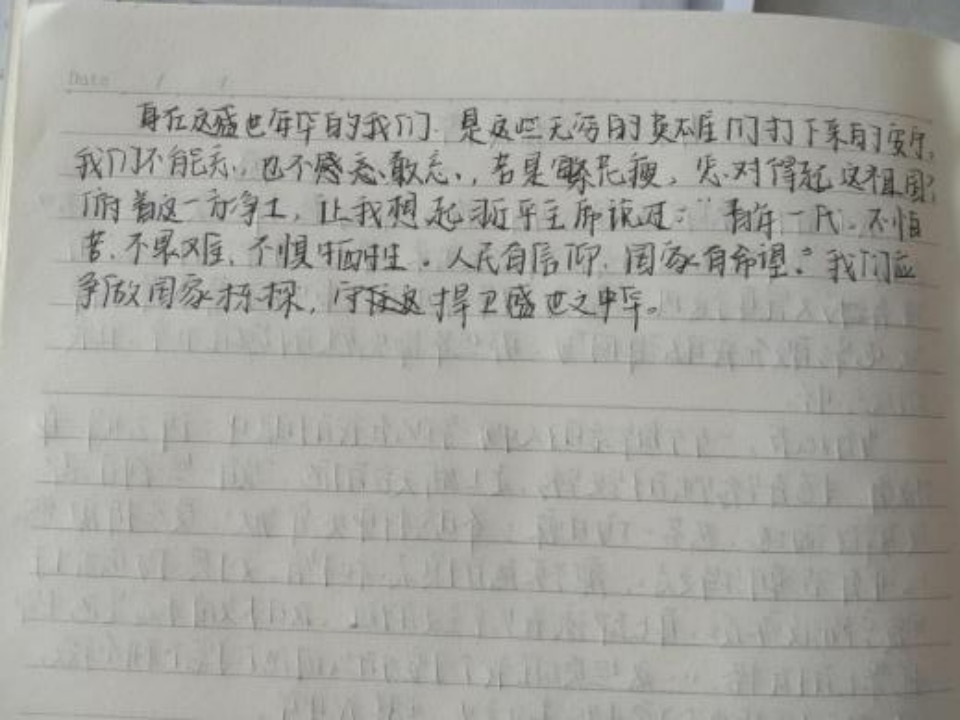 Date / /
身在这盛世年华的我们,是这些无名的英雄们打下来的安宁,
我们不能忘,也不感忘敢忘,若是繁花瘦,怎对得起这祖国?
俯着这一方净土,让我想起近平主席说过:“青年一代,不怕
苦、不畏难、不惧牺牲。人民有信仰,国家有希望。”我们应
争做国家栋梁,守住这捍卫盛世之中华。